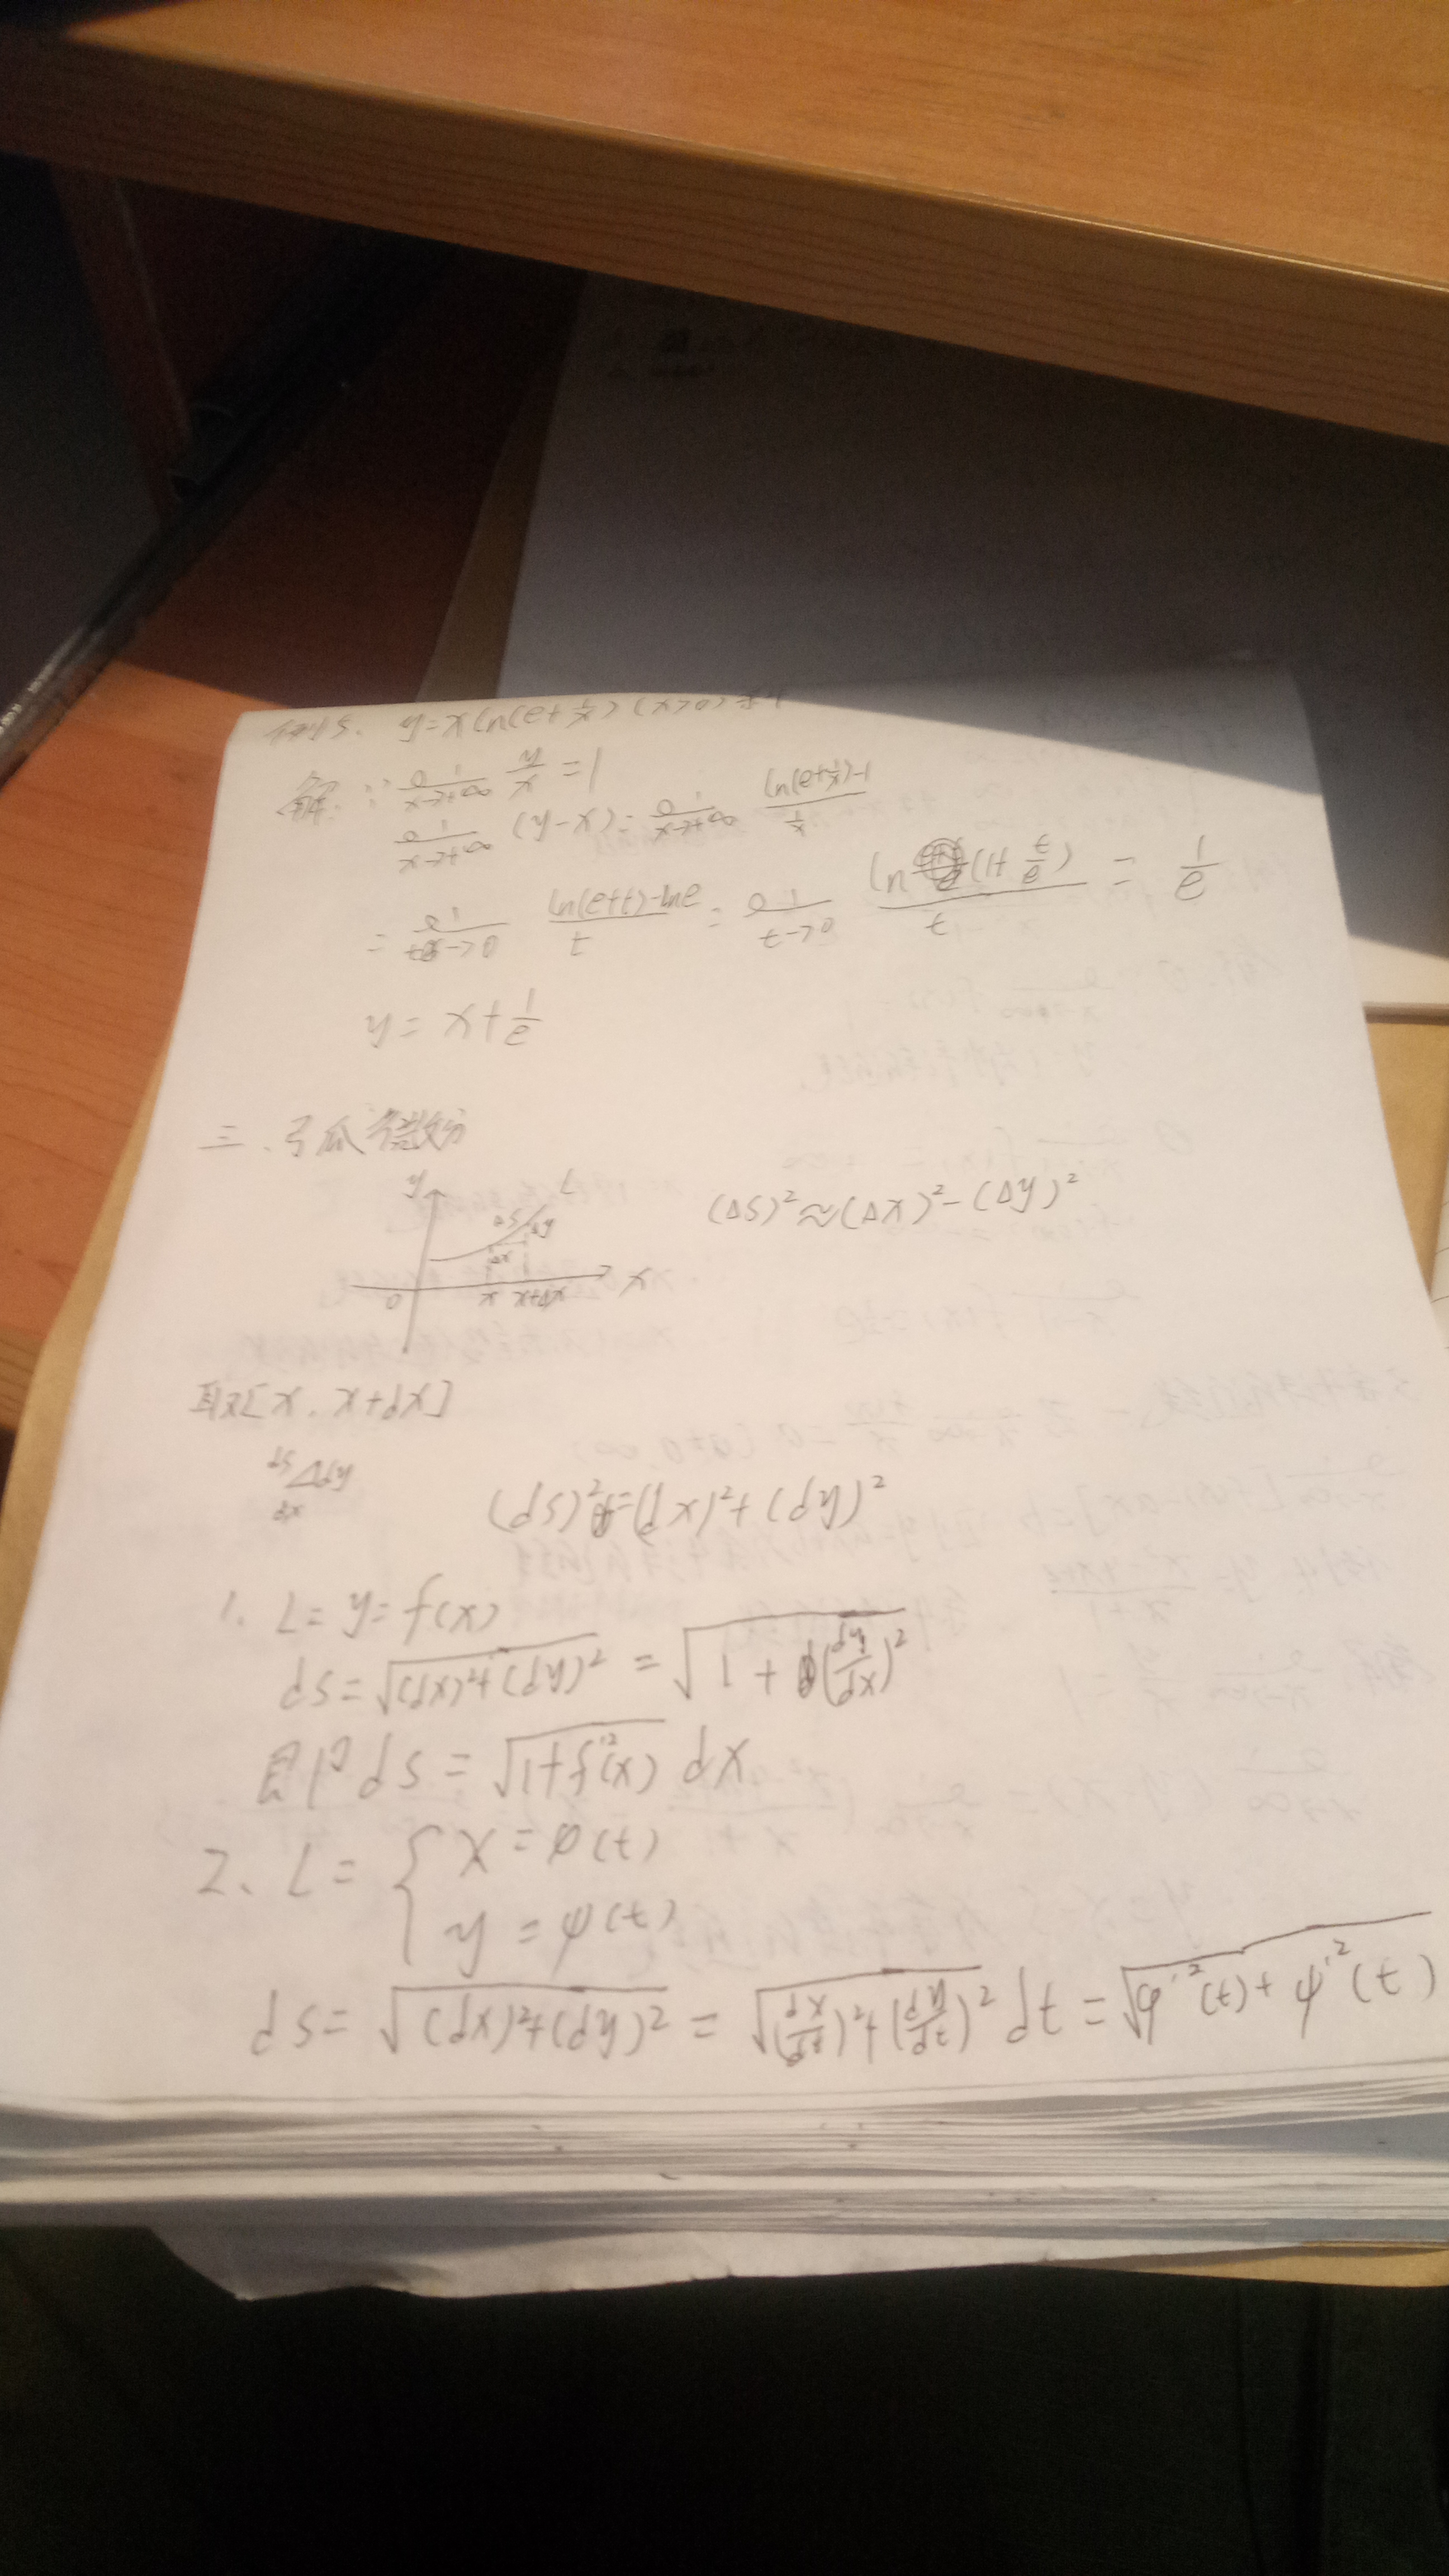 例5. y=xln(e+1/x) (x>0)
解: ∵ lim x→+∞ y/x =1
lim x→+∞ (y-x)= lim x→+∞ (ln(e+1/x)-1)/(1/x)
= lim t→0 (ln(e+t)-lne)/t = lim t→0 ln(1+t/e)/t = 1/e
y= x+1/e
三、弧微分
y L
Δs Δy
Δx
0 x x+Δx x
(Δs)²≈(Δx)²-(Δy)²
取[x, x+dx]
ds dy
dx
(ds)²=(dx)²+(dy)²
1. L= y= f(x)
ds=√((dx)²+(dy)²) =√(1+(dy/dx)²)
即 ds = √(1+f'²(x)) dx
2、L= { x=φ(t)
y=ψ(t)
ds= √((dx)²+(dy)²) = √((dx/dt)²+(dy/dt)²) dt = √(φ'²(t)+ψ'²(t))